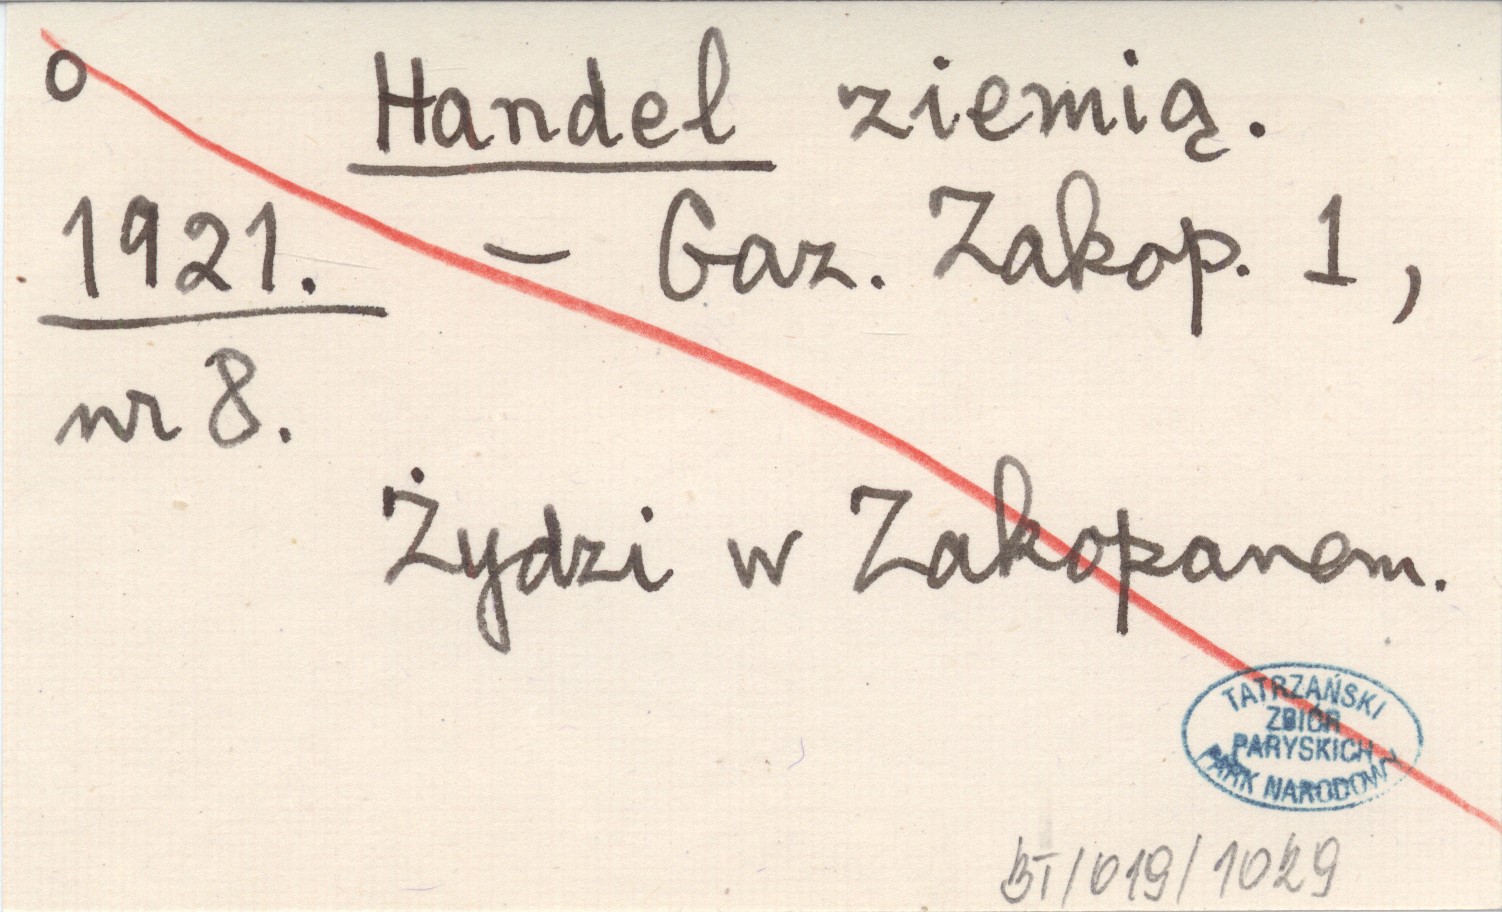 o Handel ziemią.
1921. – Gaz. Zakop. 1,
nr 8.
Żydzi w Zakopanem.
TATRZAŃSKI
ZBIÓR
PARYSKICH
PARK NARODOWY
BT/019/1029